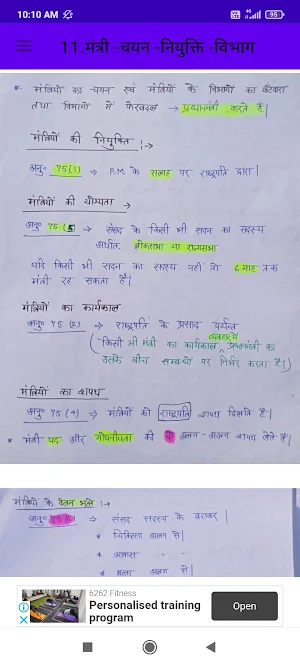 10:10 AM
4G
95
11.मंत्री -चयन -नियुक्ति -विभाग
* मंत्रियों का चयन एवं मंत्रियों के विभागों का बंटवारा
तथा विभागों में फेरबदल → प्रधानमंत्री करते हैं|
मंत्रियों की नियुक्ति :→
अनु० 75(1) → P.M. के सलाह पर राष्ट्रपति द्वारा|
मंत्रियों की योग्यता →
अनु० 75 (5) → संसद के किसी भी सदन का सदस्य
अर्थात लोकसभा या राज्यसभा
यदि किसी भी सदन का सदस्य नहीं तो 6 माह तक
मंत्री रह सकता है|
मंत्रियों का कार्यकाल
अनु० 75 (2) → राष्ट्रपति के प्रसाद पर्यन्त
व्यवहार में
(किसी भी मंत्री का कार्यकाल प्रधानमंत्री का
उसके बीच सम्बन्धों पर निर्भर करता है|)
मंत्रियों का शपथ
अनु० 75 (4) → मंत्रियों को राष्ट्रपति शपथ दिलाते हैं|
* मंत्री पद और गोपनीयता की दो अलग-अलग शपथ लेते हैं|
मंत्रियों के वेतन भत्ते :→
अनु० 75(6) → संसद सदस्य के बराबर|
* चिकित्सा अलग से|
* आवास " "
* भत्ता अलग से|
6262 Fitness
Personalised training
program
Open